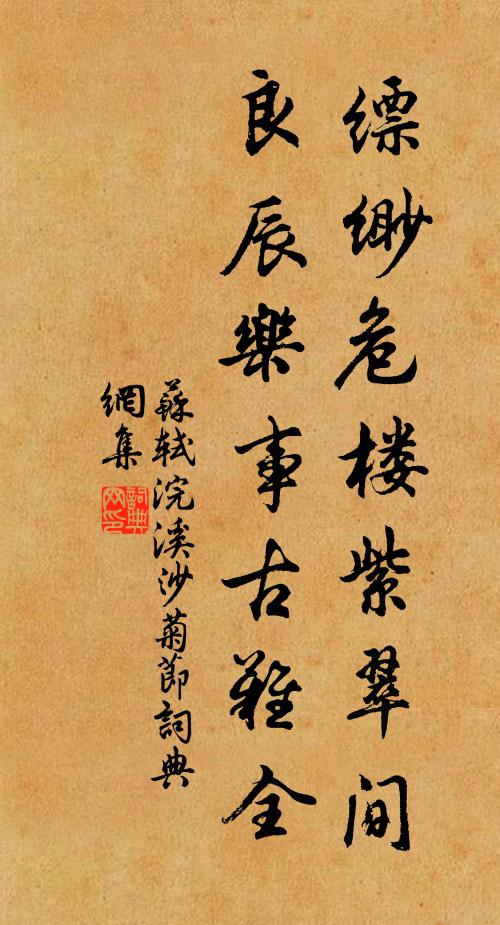 缥缈危楼紫翠间
良辰樂事古難全
蘇軾浣溪沙菊節詞典
網集
詞典網印